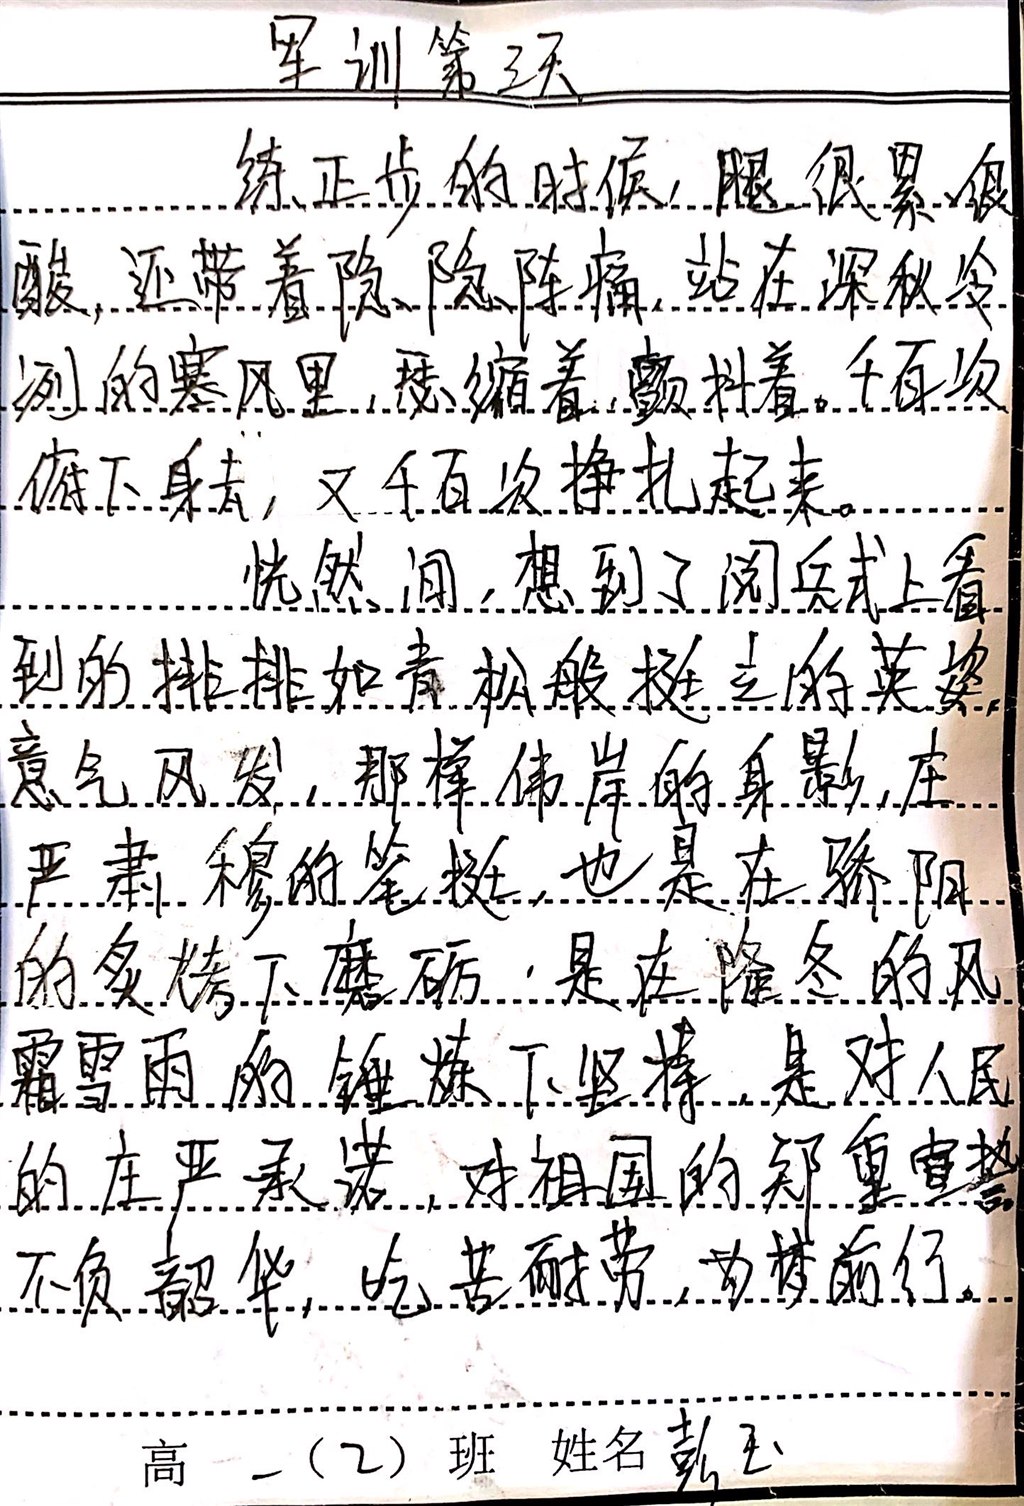 军训第三天
练正步的时候，腿很累、很
酸，还带着隐隐阵痛，站在深秋冷
冽的寒风里，瑟缩着，颤抖着。千百次
俯下身去，又千百次挣扎起来。
恍然间，想到了阅兵式上看
到的排排如青松般挺立的英姿，
意气风发，那样伟岸的身影，庄
严肃穆的笔挺，也是在骄阳
的炙烤下磨砺，是在隆冬的风
霜雪雨的锤炼下坚持，是对人民
的庄严承诺，对祖国的郑重宣誓
不负韶华，吃苦耐劳，为梦前行。
高一（2）班 姓名彭玉